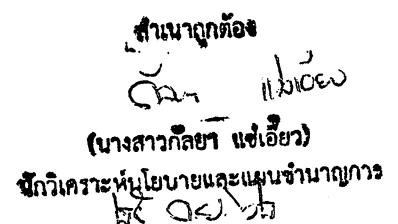 สำเนาถูกต้อง
แซ่เอี๊ยว
(นางสาวกัลยา แซ่เอี๊ยว)
นักวิเคราะห์นโยบายและแผนชำนาญการ